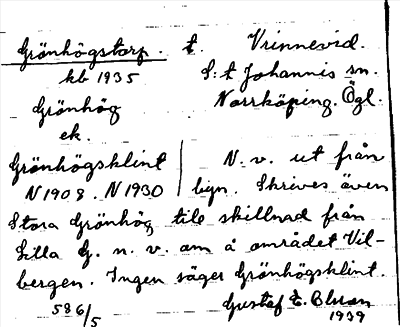 Grönhögstorp. t. Vrinnevid.
kb 1935 S:t Johannis sn.
Grönhög Norrköping. Ögl.
ek.
Grönhögsklint N. v. ut från
N 1908. N 1930 byn. Skrives även
Stora Grönhög till skillnad från
Lilla G. n. v. om å området Vil-
bergen. Ingen säger Grönhögsklint.
586/5 Gustaf E.
1939